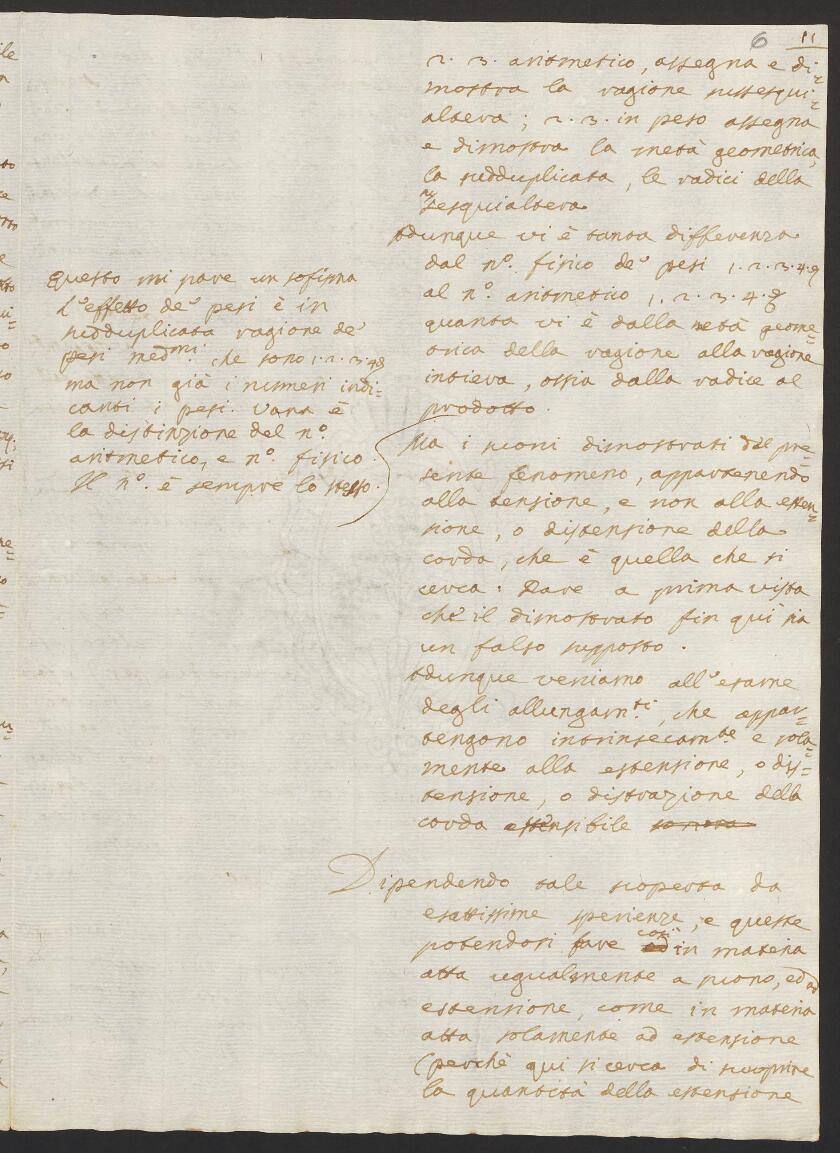 6 11
2. 3. aritmetico, assegna e di=
mostra la ragione sussesqui=
altera; 2. 3. in peso assegna
e dimostra la metà geometrica,
la sudduplicata, le radici della
sesquialtera
Adunque vi è tanta differenza
dal n.º fisico de' pesi 1. 2. 3. 4. 9
al n.º aritmetico 1. 2. 3. 4. 9
quanta vi è dalla metà geome=
trica della ragione alla ragione
intiera, ossia dalla radice al
prodotto.
Questo mi pare un sofisma
L'effetto de' pesi è in
sudduplicata ragione de'
pesi med.mi che sono 1. 2. 3. 4. 9
ma non già i numeri indi=
canti i pesi. Vana è
la distinzione del n.º
aritmetico, e n.º fisico.
Il n.º è sempre lo stesso.
Ma i suoni dimostrati dal pre=
sente fenomeno, appartenendo
alla tensione, e non alla esten=
sione, o distensione della
corda, che è quella che si
cerca. Pare a prima vista
che il dimostrato fin qui sia
un falso supposto.
Adunque veniamo all'esame
degli allungam.ti, che appar=
tengono intrinsecam.te e sola=
mente alla estensione, o dis=
tensione, o distrazione della
corda estensibile sonora
Dipendendo tale scoperta da
esattissime sperienze, e queste
potendosi fare così in materia
atta ugualmente a suono, ed ad
estensione, come in materia
atta solamente ad estensione
(perchè qui si cerca di scoprire
la quantità della estensione